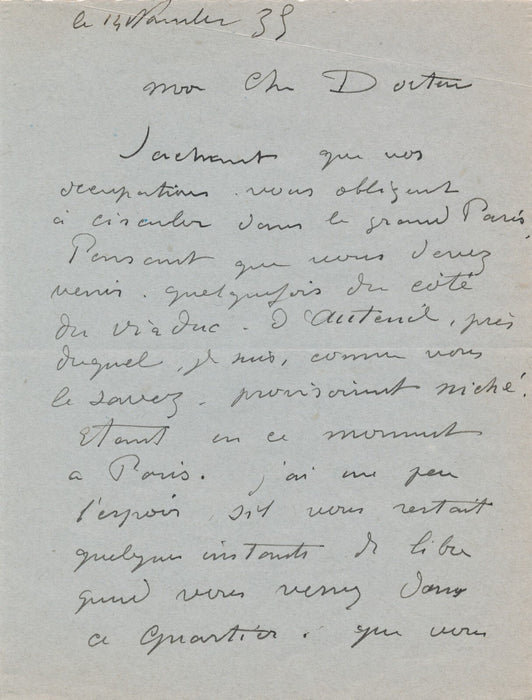 le 14 Novembre 35
mon cher Docteur
Sachant que vos
occupations vous obligent
à circuler dans le grand Paris,
Pensant que vous devez
venir. quelquefois du côté
du viaduc - d'Auteuil, près
duquel, je suis, comme vous
le savez - provisoirement niché.
Etant en ce moment
a Paris. j'ai un peu
l'espoir, s'il vous restait
quelques instants de libre
quand vous venez dans
ce quartier. que vous